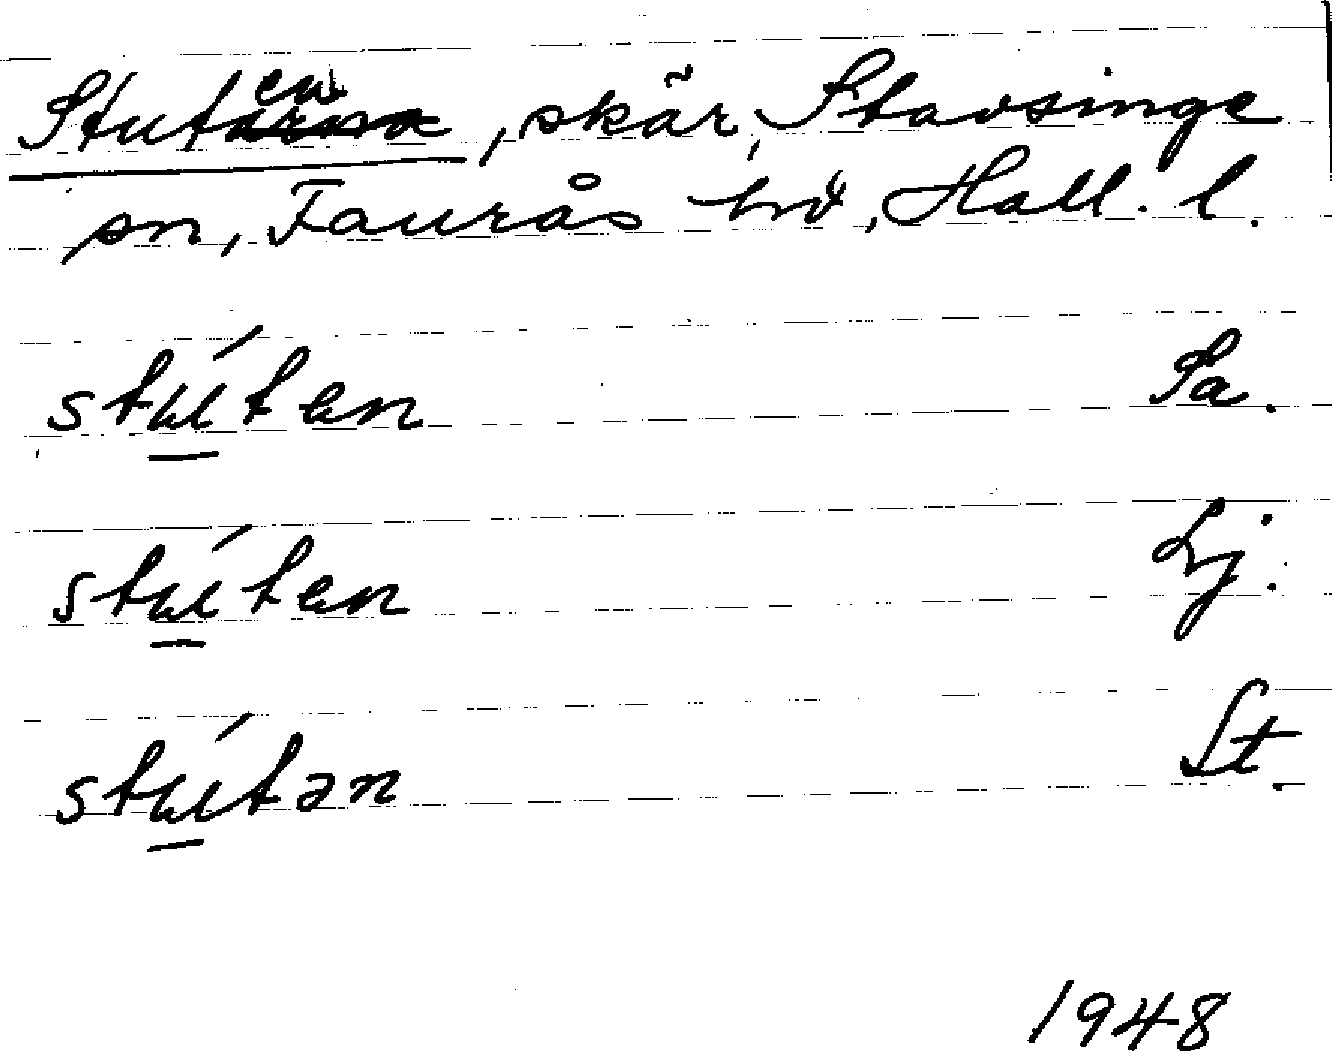 Stuten, skär, Stavsinge
sn, Faurås hd, Hall. l.
stúten Sa.
stúten Lj.
stútən St.
1948